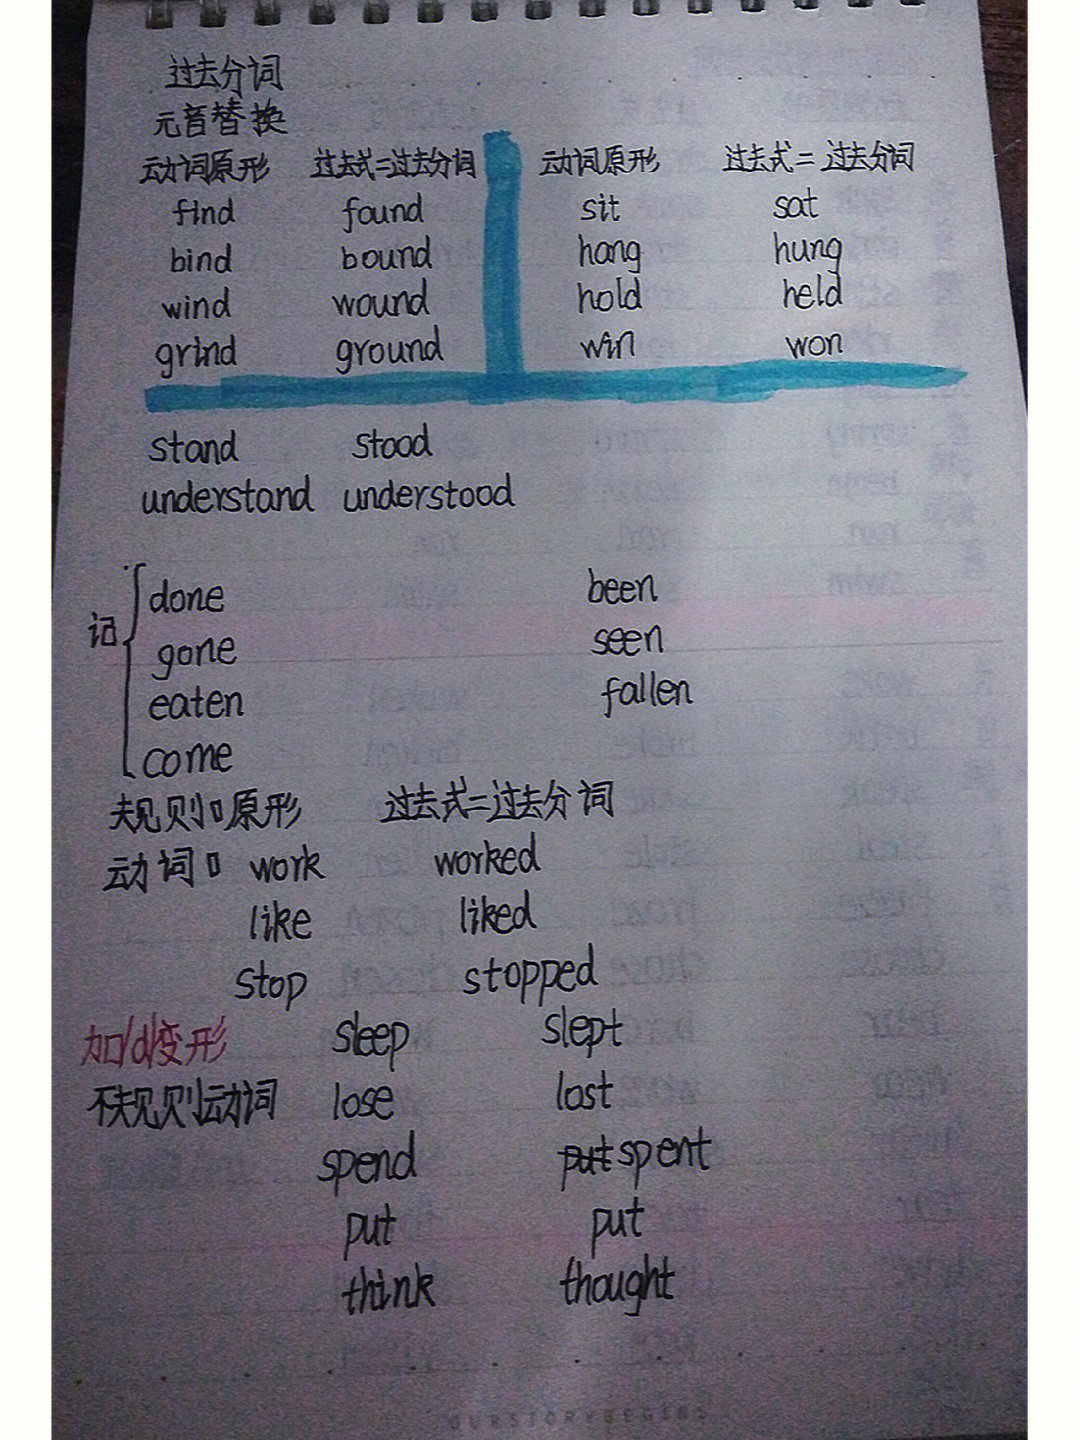 过去分词
元音替换
动词原形 过去式=过去分词 动词原形 过去式=过去分词
find found sit sat
bind bound hang hung
wind wound hold held
grind ground win won
stand stood
understand understood
done been
记 gone seen
eaten fallen
come
规则 原形 过去式=过去分词
动词 work worked
like liked
stop stopped
加/d/变形 sleep slept
不规则动词 lose lost
spend put spent
put put
think thought
OURSTORYBEGINS